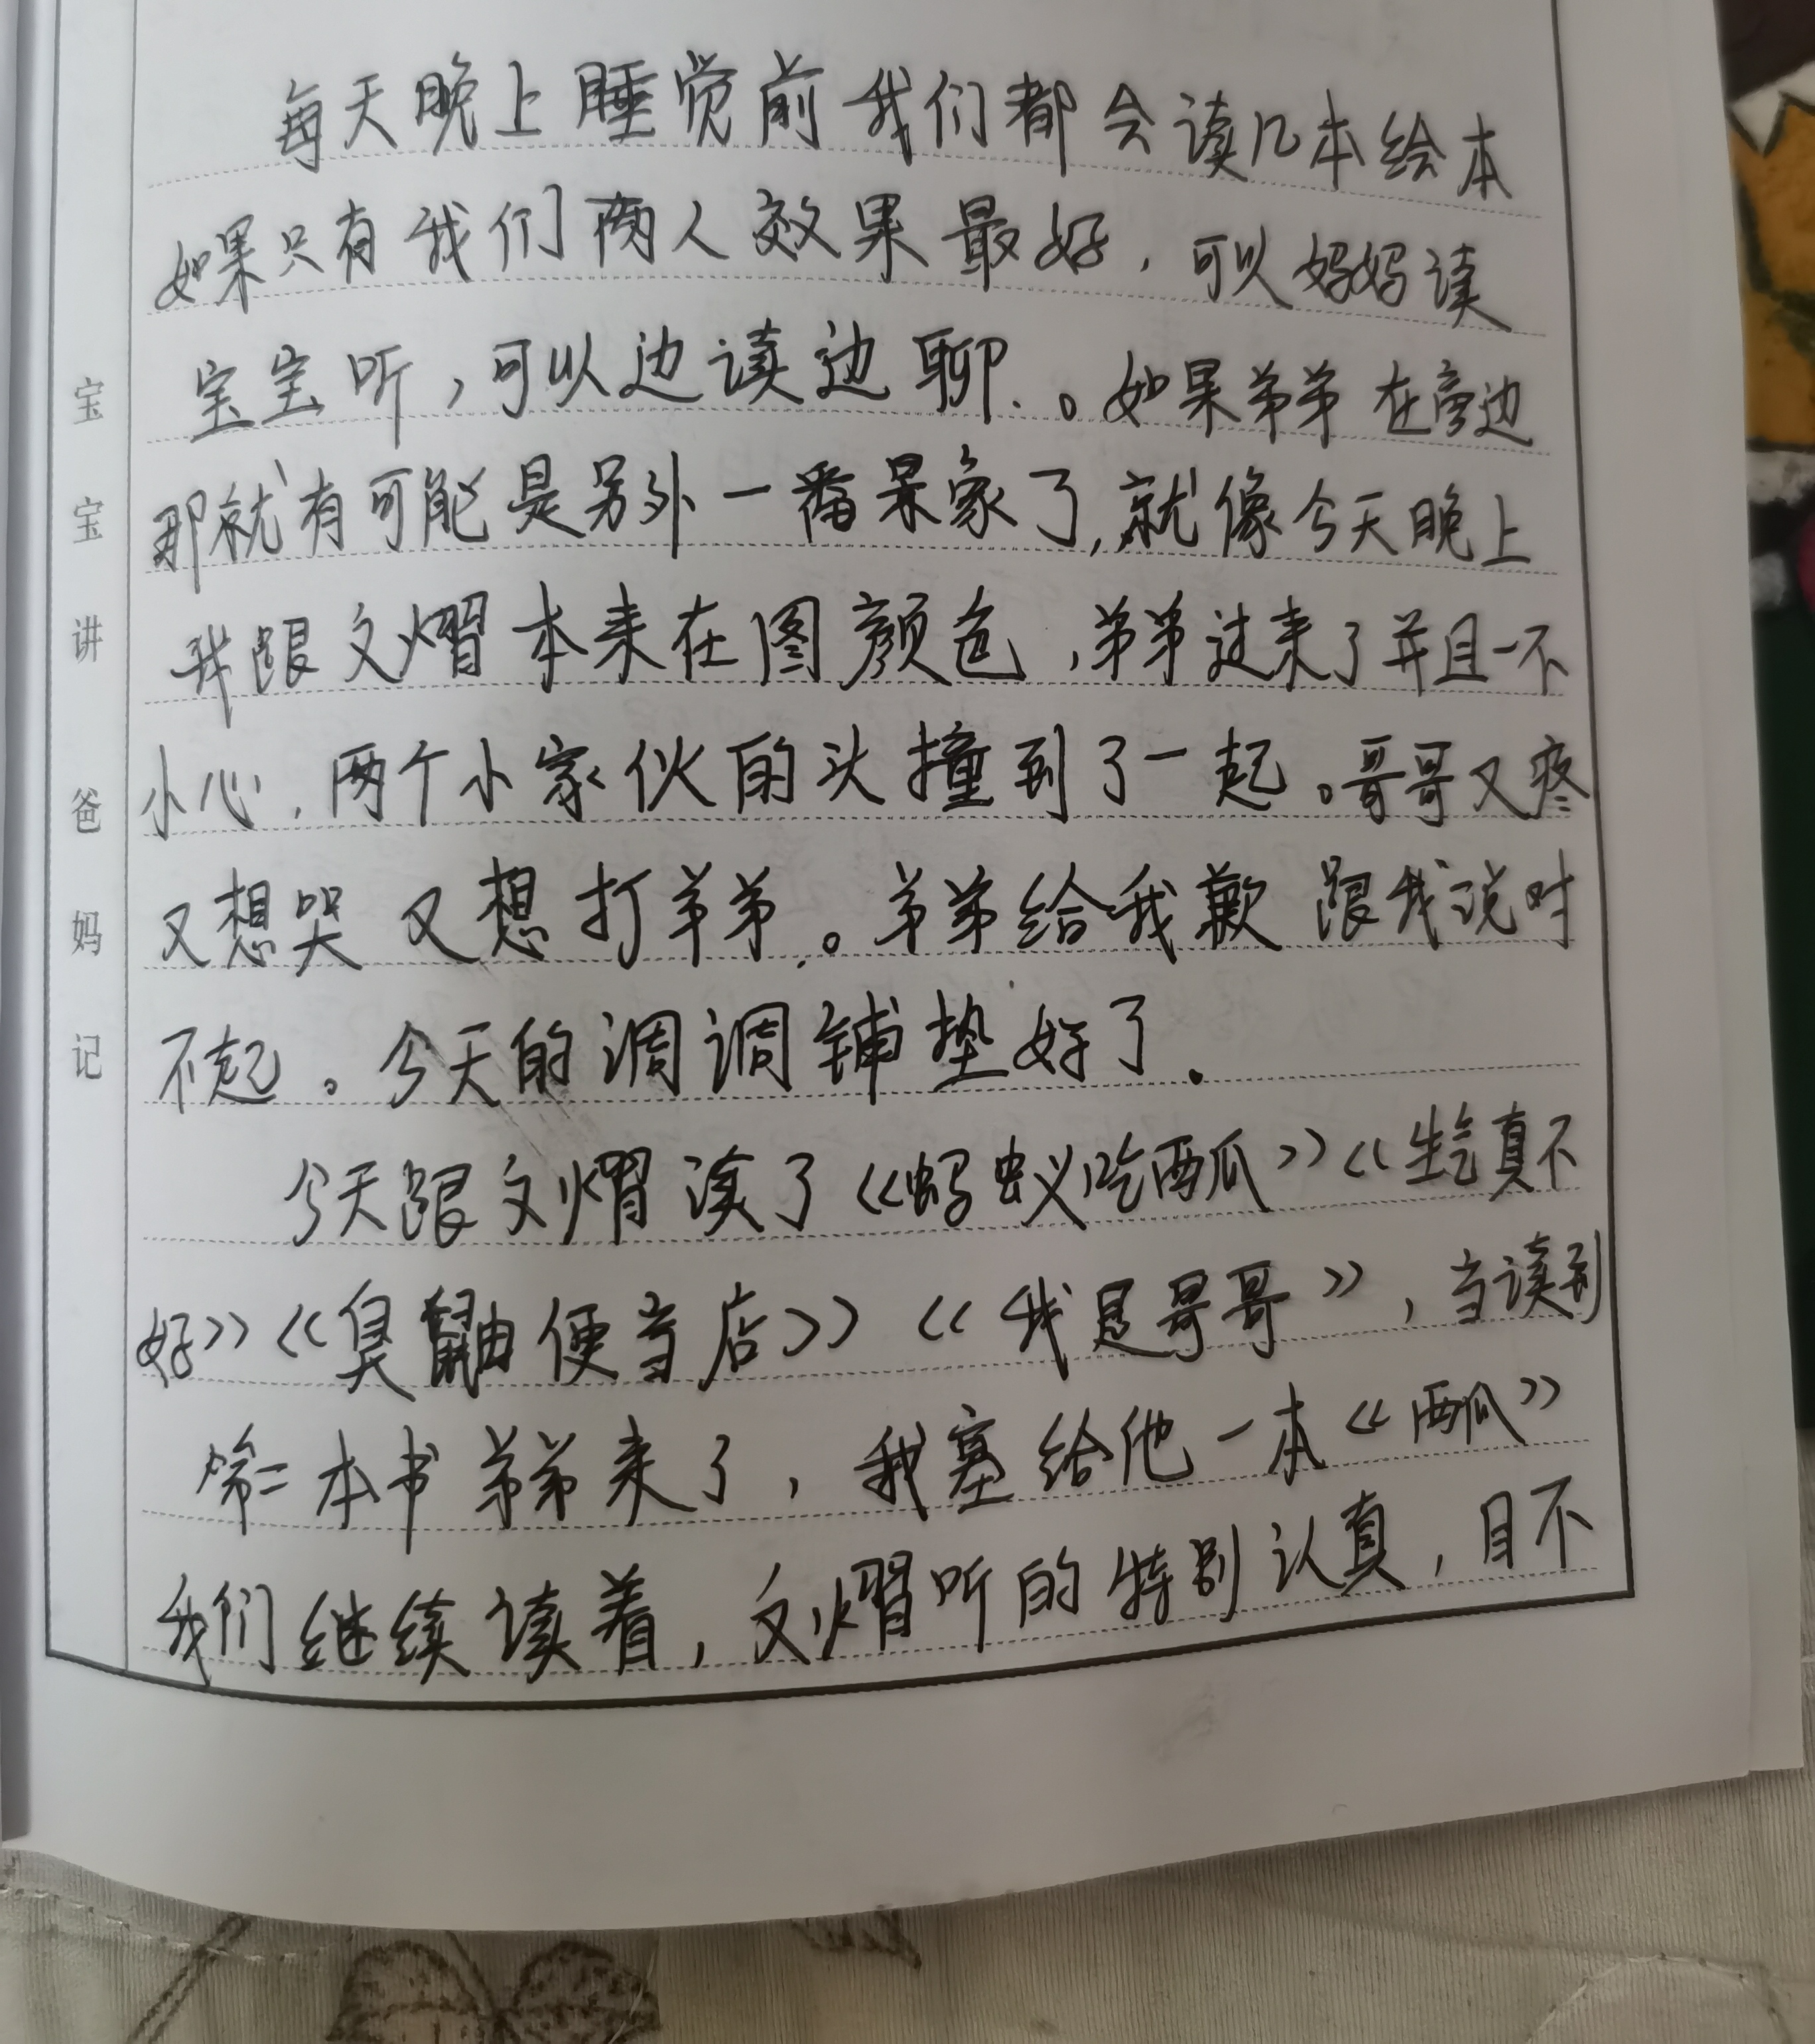 宝宝讲 爸妈记
每天晚上睡觉前我们都会读几本绘本
如果只有我们两人效果最好，可以妈妈读
宝宝听，可以边读边聊.。如果弟弟在旁边
那就有可能是另外一番景象了,就像今天晚上
我跟文熠本来在图颜色，弟弟过来了并且一不
小心，两个小家伙的头撞到了一起。哥哥又疼
又想哭又想打弟弟。弟弟给我歉跟我说对
不起。今天的调调铺垫好了.
今天跟文熠读了《蚂蚁吃西瓜》《生气真不
好》《臭鼬便当店》《我是哥哥》，当读到
第二本书弟弟来了，我塞给他一本《西瓜》
我们继续读着，文熠听的特别认真，目不